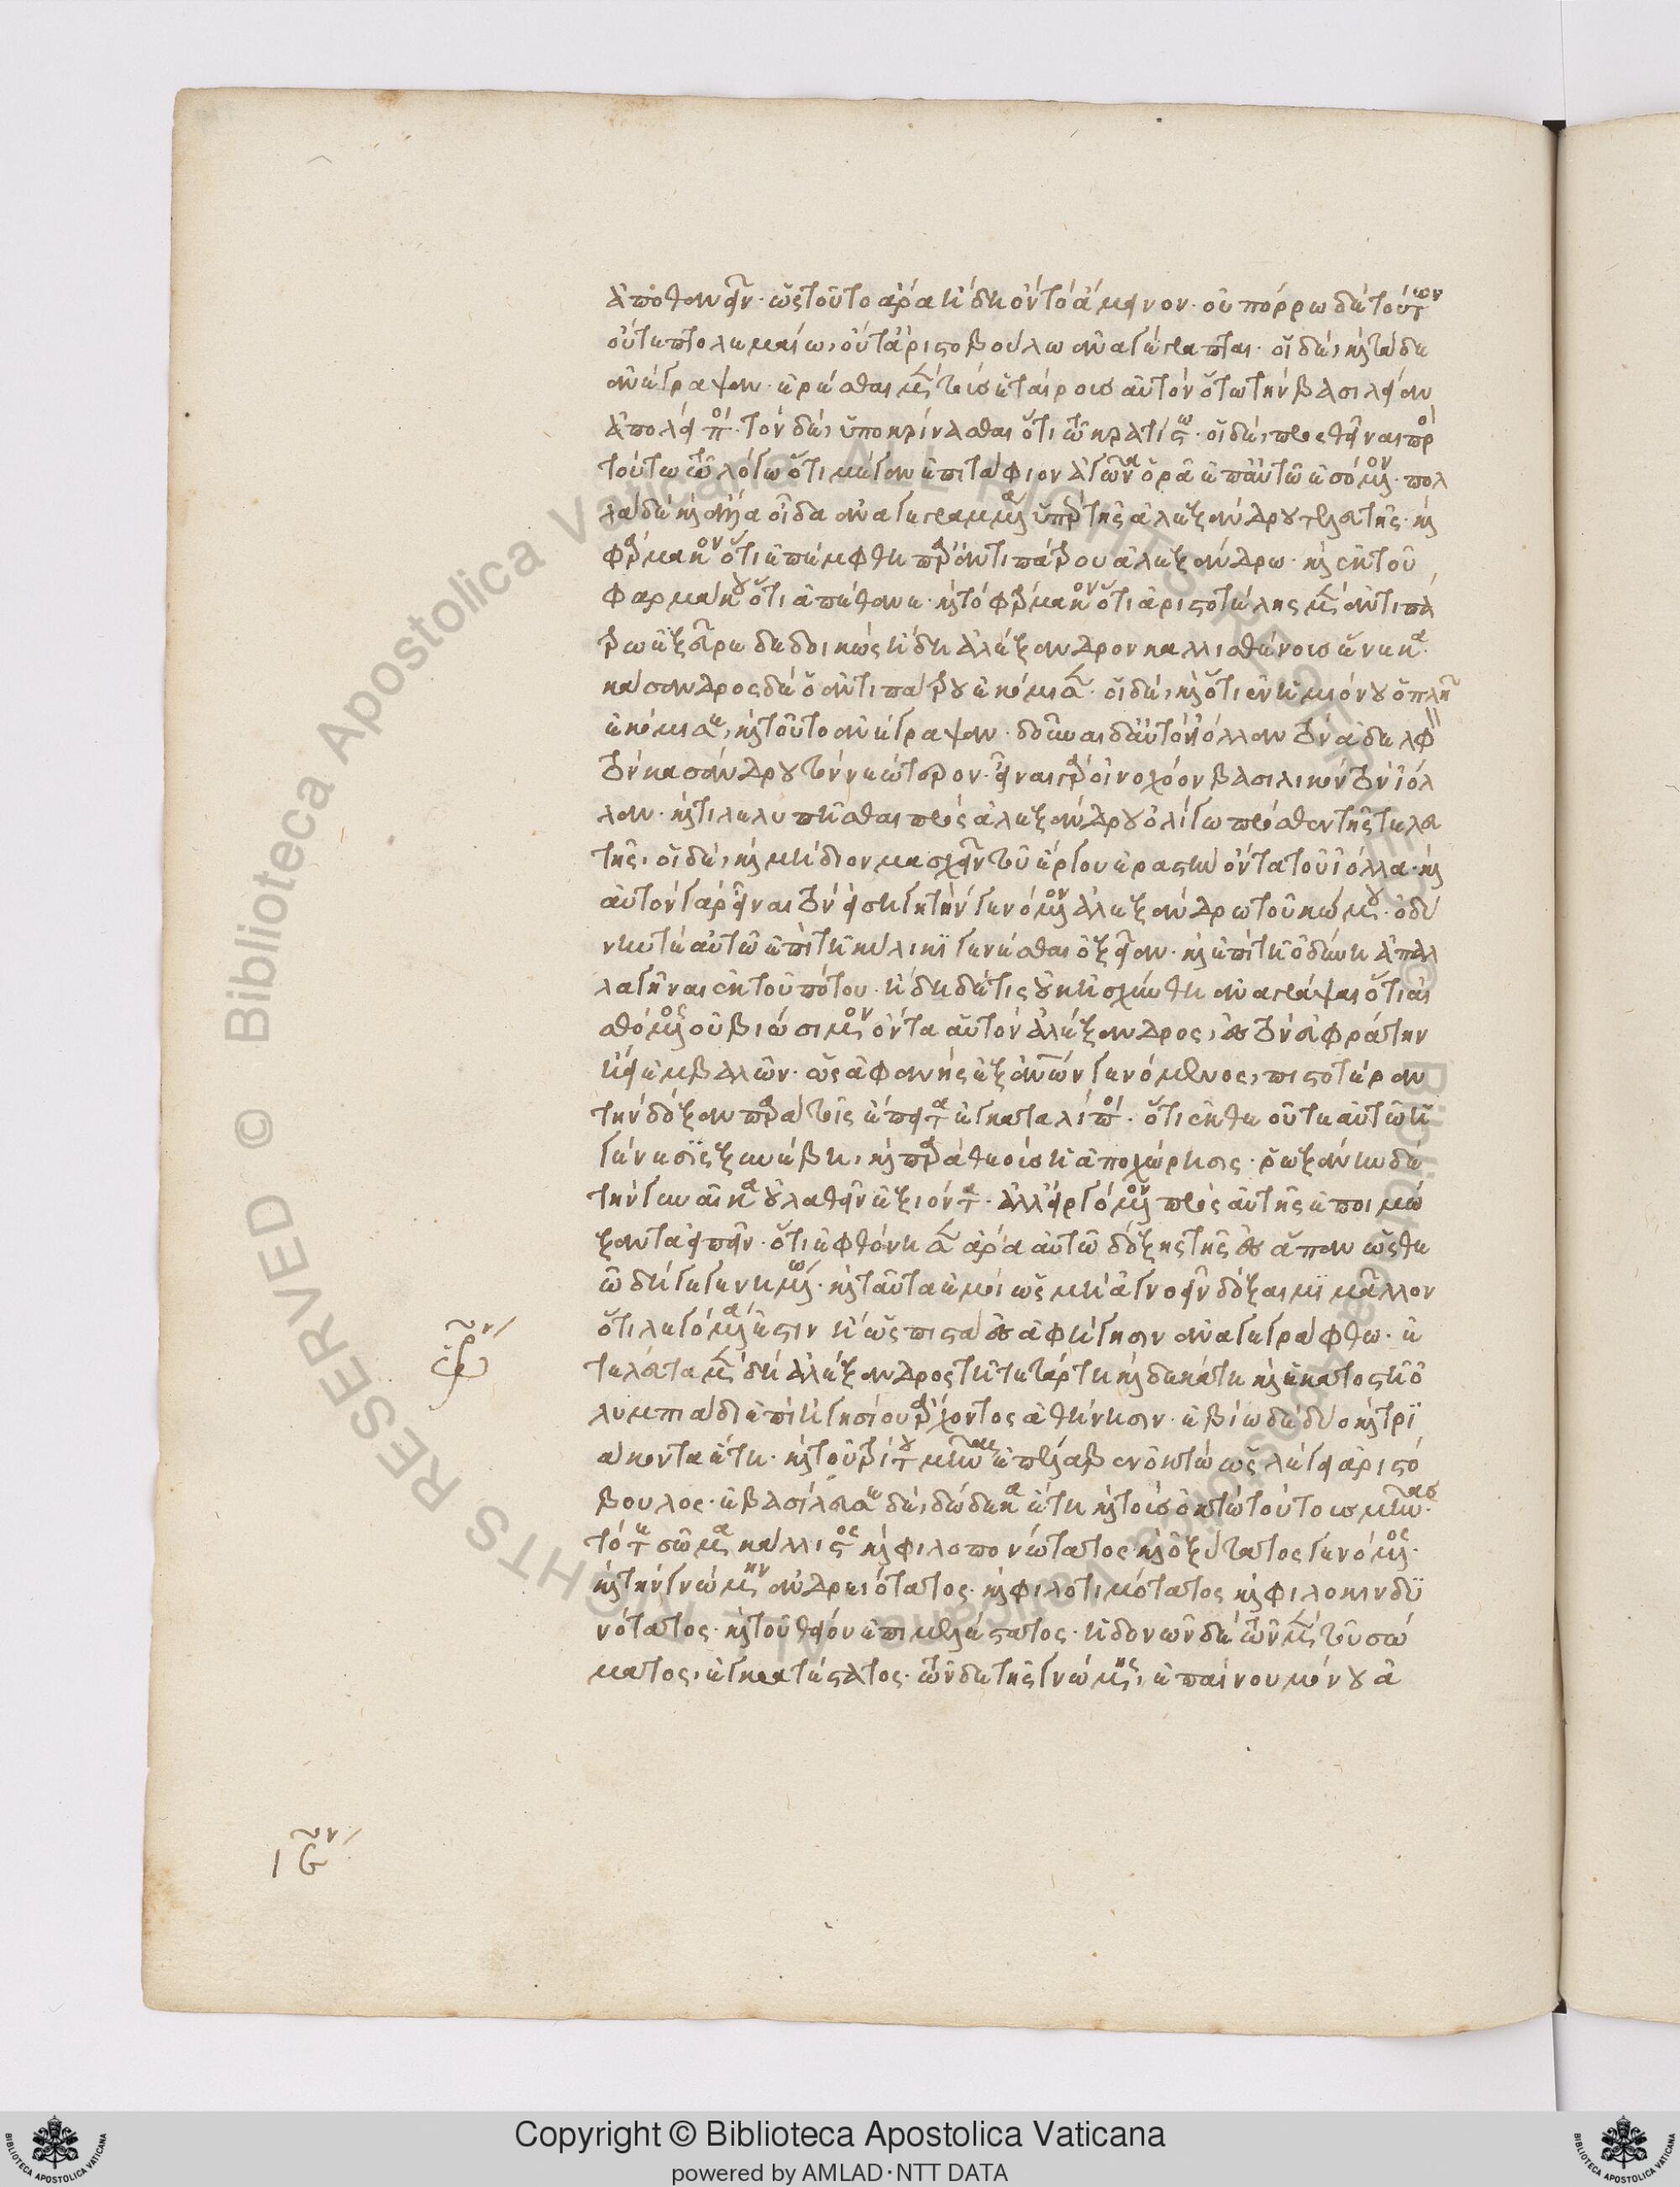 ἀποθανεῖν· ὡς τοῦτο ἄρα ἤδη ὂν τὸ ἄμεινον· οὐ πόρρω δὲ τούτων
οὔτε πτολεμαίω, οὔτ' ἀριστοβούλω ἀναγέγραπται· οἱ δὲ, καὶ τάδε
ἀνέγραψαν· ἐρέσθαι μὲν τοὺς ἑταίρους αὐτὸν ὅτω τὴν βασιλείαν
ἀπολείποι· τὸν δὲ, ὑποκρίνασθαι ὅτι τῶ κρατίστω· οἱ δὲ, προσθεῖναι πρὸς
τούτω τῶ λόγω ὅτι μέγαν ἐπιτάφιον ἀγῶνα ὁρᾶ ἐπ' αὐτῶ ἐσόμενον· πολ
λὰ δὲ καὶ ἄλλα οἶδα ἀναγεγραμμένα ὑπὲρ τῆς ἀλεξάνδρου τελευτῆς· καὶ
φάρμακον ὅτι ἐπέμφθη παρὰ ἀντιπάτρου ἀλεξάνδρω· καὶ ἐκ τοῦ
φαρμάκου ὅτι ἀπέθανε· καὶ τὸ φάρμακον ὅτι ἀριστοτέλης μὲν ἀντιπά
τρω ἐξεῦρε δεδοικὼς ἤδη ἀλέξανδρον καλλισθένους ἕνεκα·
κάσανδρος δὲ ὁ ἀντιπάτρου ἐκόμισεν· οἱ δὲ, καὶ ὅτι ἐν ἡμιόνου ὁπλῆ
ἐκόμισε, καὶ τοῦτο ἀνέγραψαν· δοῦναι δὲ αὐτὸ ἰόλλαν τὸν ἀδελφὸν
τὸν κασάνδρου τὸν νεώτερον· εἶναι γὰρ οἰνοχόον βασιλικὸν τὸν ἰόλ
λαν· καί τι λελυπῆσθαι πρὸς ἀλεξάνδρου ὀλίγω πρόσθεν τῆς τελευ
τῆς, οἱ δὲ, καὶ μήδιον μετασχεῖν τοῦ ἔργου ἐραστὴν ὄντα τοῦ ἰόλλα· καὶ
αὐτὸν γὰρ εἶναι τὸν εἰσηγητὴν γενόμενον ἀλεξάνδρω τοῦ κώμου· ὀδύ
νην τε αὐτῶ ἐπὶ τῆ κύλικι γενέσθαι ὀξεῖαν· καὶ ἐπὶ τῆ ὀδύνη ἀπαλ
λαγῆναι ἐκ τοῦ πότου· ἤδη δέ τις οὐκ ἠσχύνθη ἀναγράψαι ὅτι αἰ
σθόμενος οὐ βιώσιμον ὄντα αὑτὸν ἀλέξανδρος, ἐς τὸν εὐφράτην
ἤει ἐμβαλῶν· ὡς ἀφανὴς ἐξ ἀνθρώπων γενόμενος, πιστοτέραν
τὴν δόξαν παρὰ τοῖς ἔπειτα ἐγκαταλίποι· ὅτι ἐκ θεοῦ τε αὐτῶ ἡ
γένεσις ξυνέβη, καὶ παρὰ θεοὺς ἡ ἀποχώρησις· ῥωξάνην δὲ
τὴν γυναῖκα οὐ λαθεῖν ἐξιόντα· ἀλλ' εἰργόμενον πρὸς αὐτῆς ἐποιμώ
ξαντα εἰπεῖν· ὅτι ἐφθόνησεν ἄρα αὐτῶ δόξης τῆς ἐς ἅπαν ὡς θε
ῶ δὴ γεγενημένω· καὶ ταῦτα ἐμοὶ ὡς μὴ ἀγνοεῖν δόξαιμι μᾶλλον
ὅτι λεγόμενά ἐστιν ἢ ὡς πιστὰ ἐς ἀφήγησιν ἀναγεγράφθω· ἐ
τελεύτα μὲν δὴ ἀλέξανδρος τῆ τετάρτη καὶ δεκάτη καὶ ἑκατοστῆ ὀ
λυμπιάδι ἐπὶ ἡγησίου ἄρχοντος ἀθήνησιν· ἐβίω δὲ δύο καὶ τρι
άκοντα ἔτη· καὶ τοῦ τρίτου μῆνας ἐπέλαβεν ὀκτώ ὡς λέγει ἀριστό
βουλος· ἐβασίλευσε δὲ, δώδεκα ἔτη καὶ τοὺς ὀκτὼ τούτους μῆνας·
τό τε σῶμα κάλλιστος καὶ φιλοπονώτατος καὶ ὀξύτατος γενόμενος·
καὶ τὴν γνώμην ἀνδρειότατος· καὶ φιλοτιμότατος καὶ φιλοκινδυ
νότατος· καὶ τοῦ θείου ἐπιμελέστατος· ἡδονῶν δὲ τῶν μὲν τοῦ σώ
ματος, ἐγκρατέστατος· τῶν δὲ τῆς γνώμης, ἐπαίνου μόνου ἀ
Copyright © Biblioteca Apostolica Vaticana
powered by AMLAD·NTT DATA